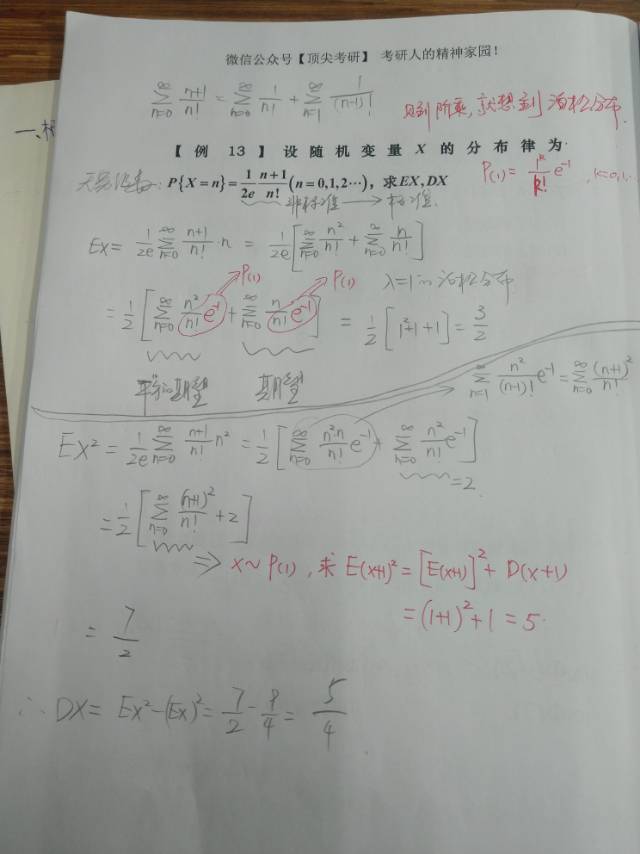 微信公众号【顶尖考研】 考研人的精神家园！
∑_{n=0}^{∞} (n+1)/n! = ∑_{n=0}^{∞} 1/n! + ∑_{n=1}^{∞} 1/(n-1)!
见到阶乘，就想到泊松分布.
一、
【 例 13 】 设 随 机 变 量 X 的 分 布 律 为
P(1) = 1^k/k! e^{-1}, k=0,1,..
P{X=n} = 1/2e (n+1)/n! (n=0,1,2…)，求EX,DX
非标准 → 标准
EX = 1/2e ∑_{n=0}^{∞} (n+1)/n! · n = 1/2e [∑_{n=0}^{∞} n²/n! + ∑_{n=0}^{∞} n/n!]
P(1) P(1) λ=1的泊松分布
= 1/2 [∑_{n=0}^{∞} n²/n! e^{-1} + ∑_{n=0}^{∞} n/n! e^{-1}] = 1/2 [1²+1+1] = 3/2
平方的期望 期望
∑_{n=1}^{∞} n²/(n-1)! e^{-1} = ∑_{n=0}^{∞} (n+1)²/n!
EX² = 1/2e ∑_{n=0}^{∞} (n+1)/n! n² = 1/2 [∑_{n=0}^{∞} n²n/n! e^{-1} + ∑_{n=0}^{∞} n²/n! e^{-1}]
=2
= 1/2 [∑_{n=0}^{∞} (n+1)²/n! + 2]
⇒ X~P(1), 求 E(X+1)² = [E(X+1)]² + D(X+1)
= (1+1)²+1 = 5.
= 7/2
∴ DX = EX²-(EX)² = 7/2 - 9/4 = 5/4